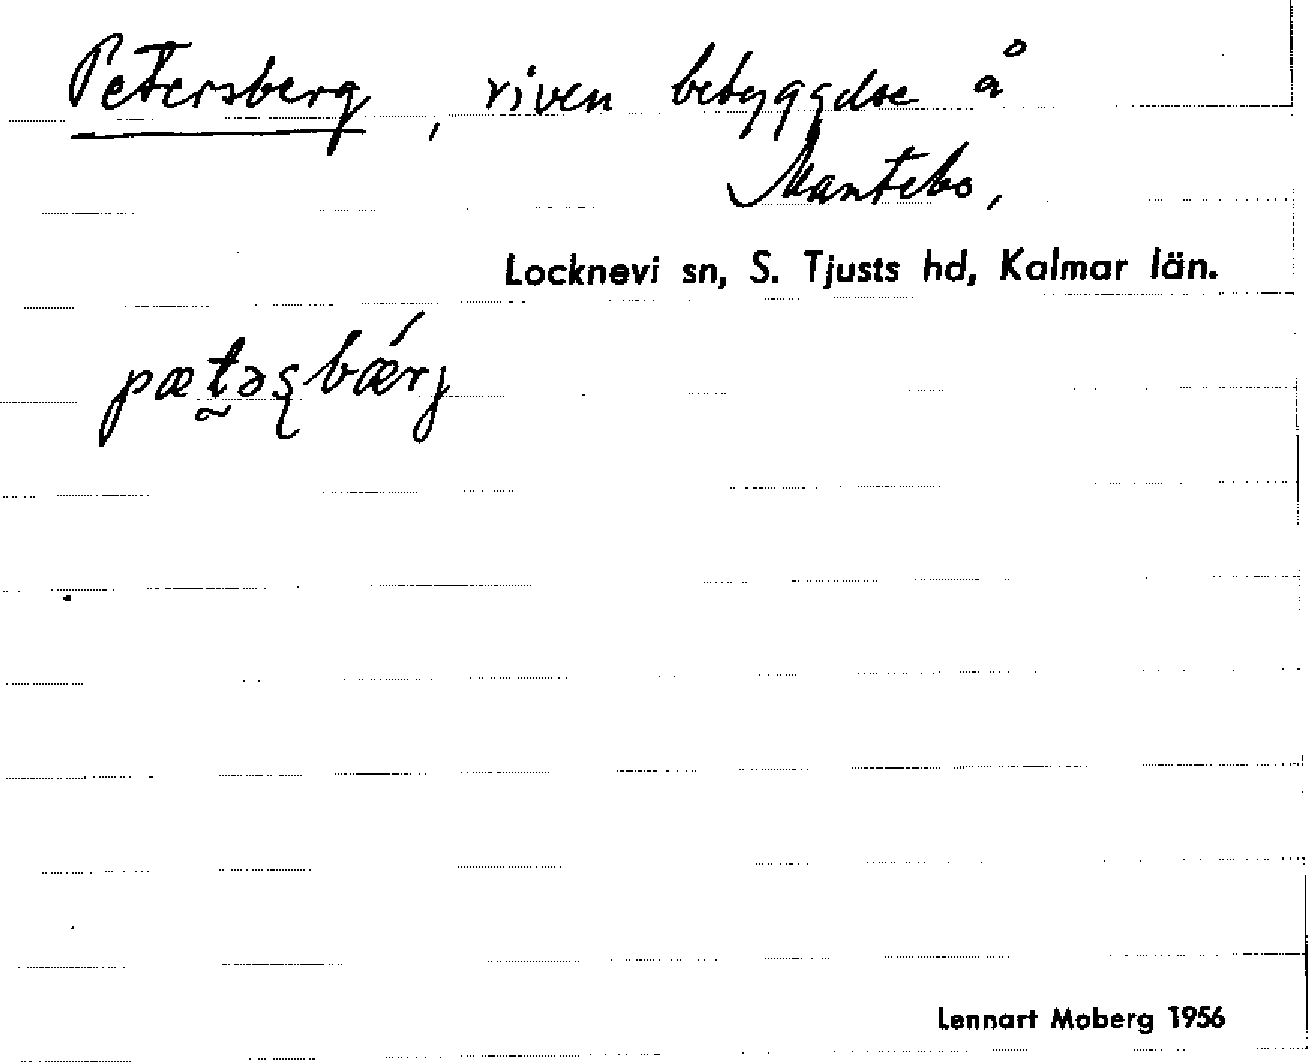 Petersberg, riven bebyggelse å
Mantebo,
Locknevi sn, S. Tjusts hd, Kalmar län.
pæt̰əʂbǽrj
Lennart Moberg 1956